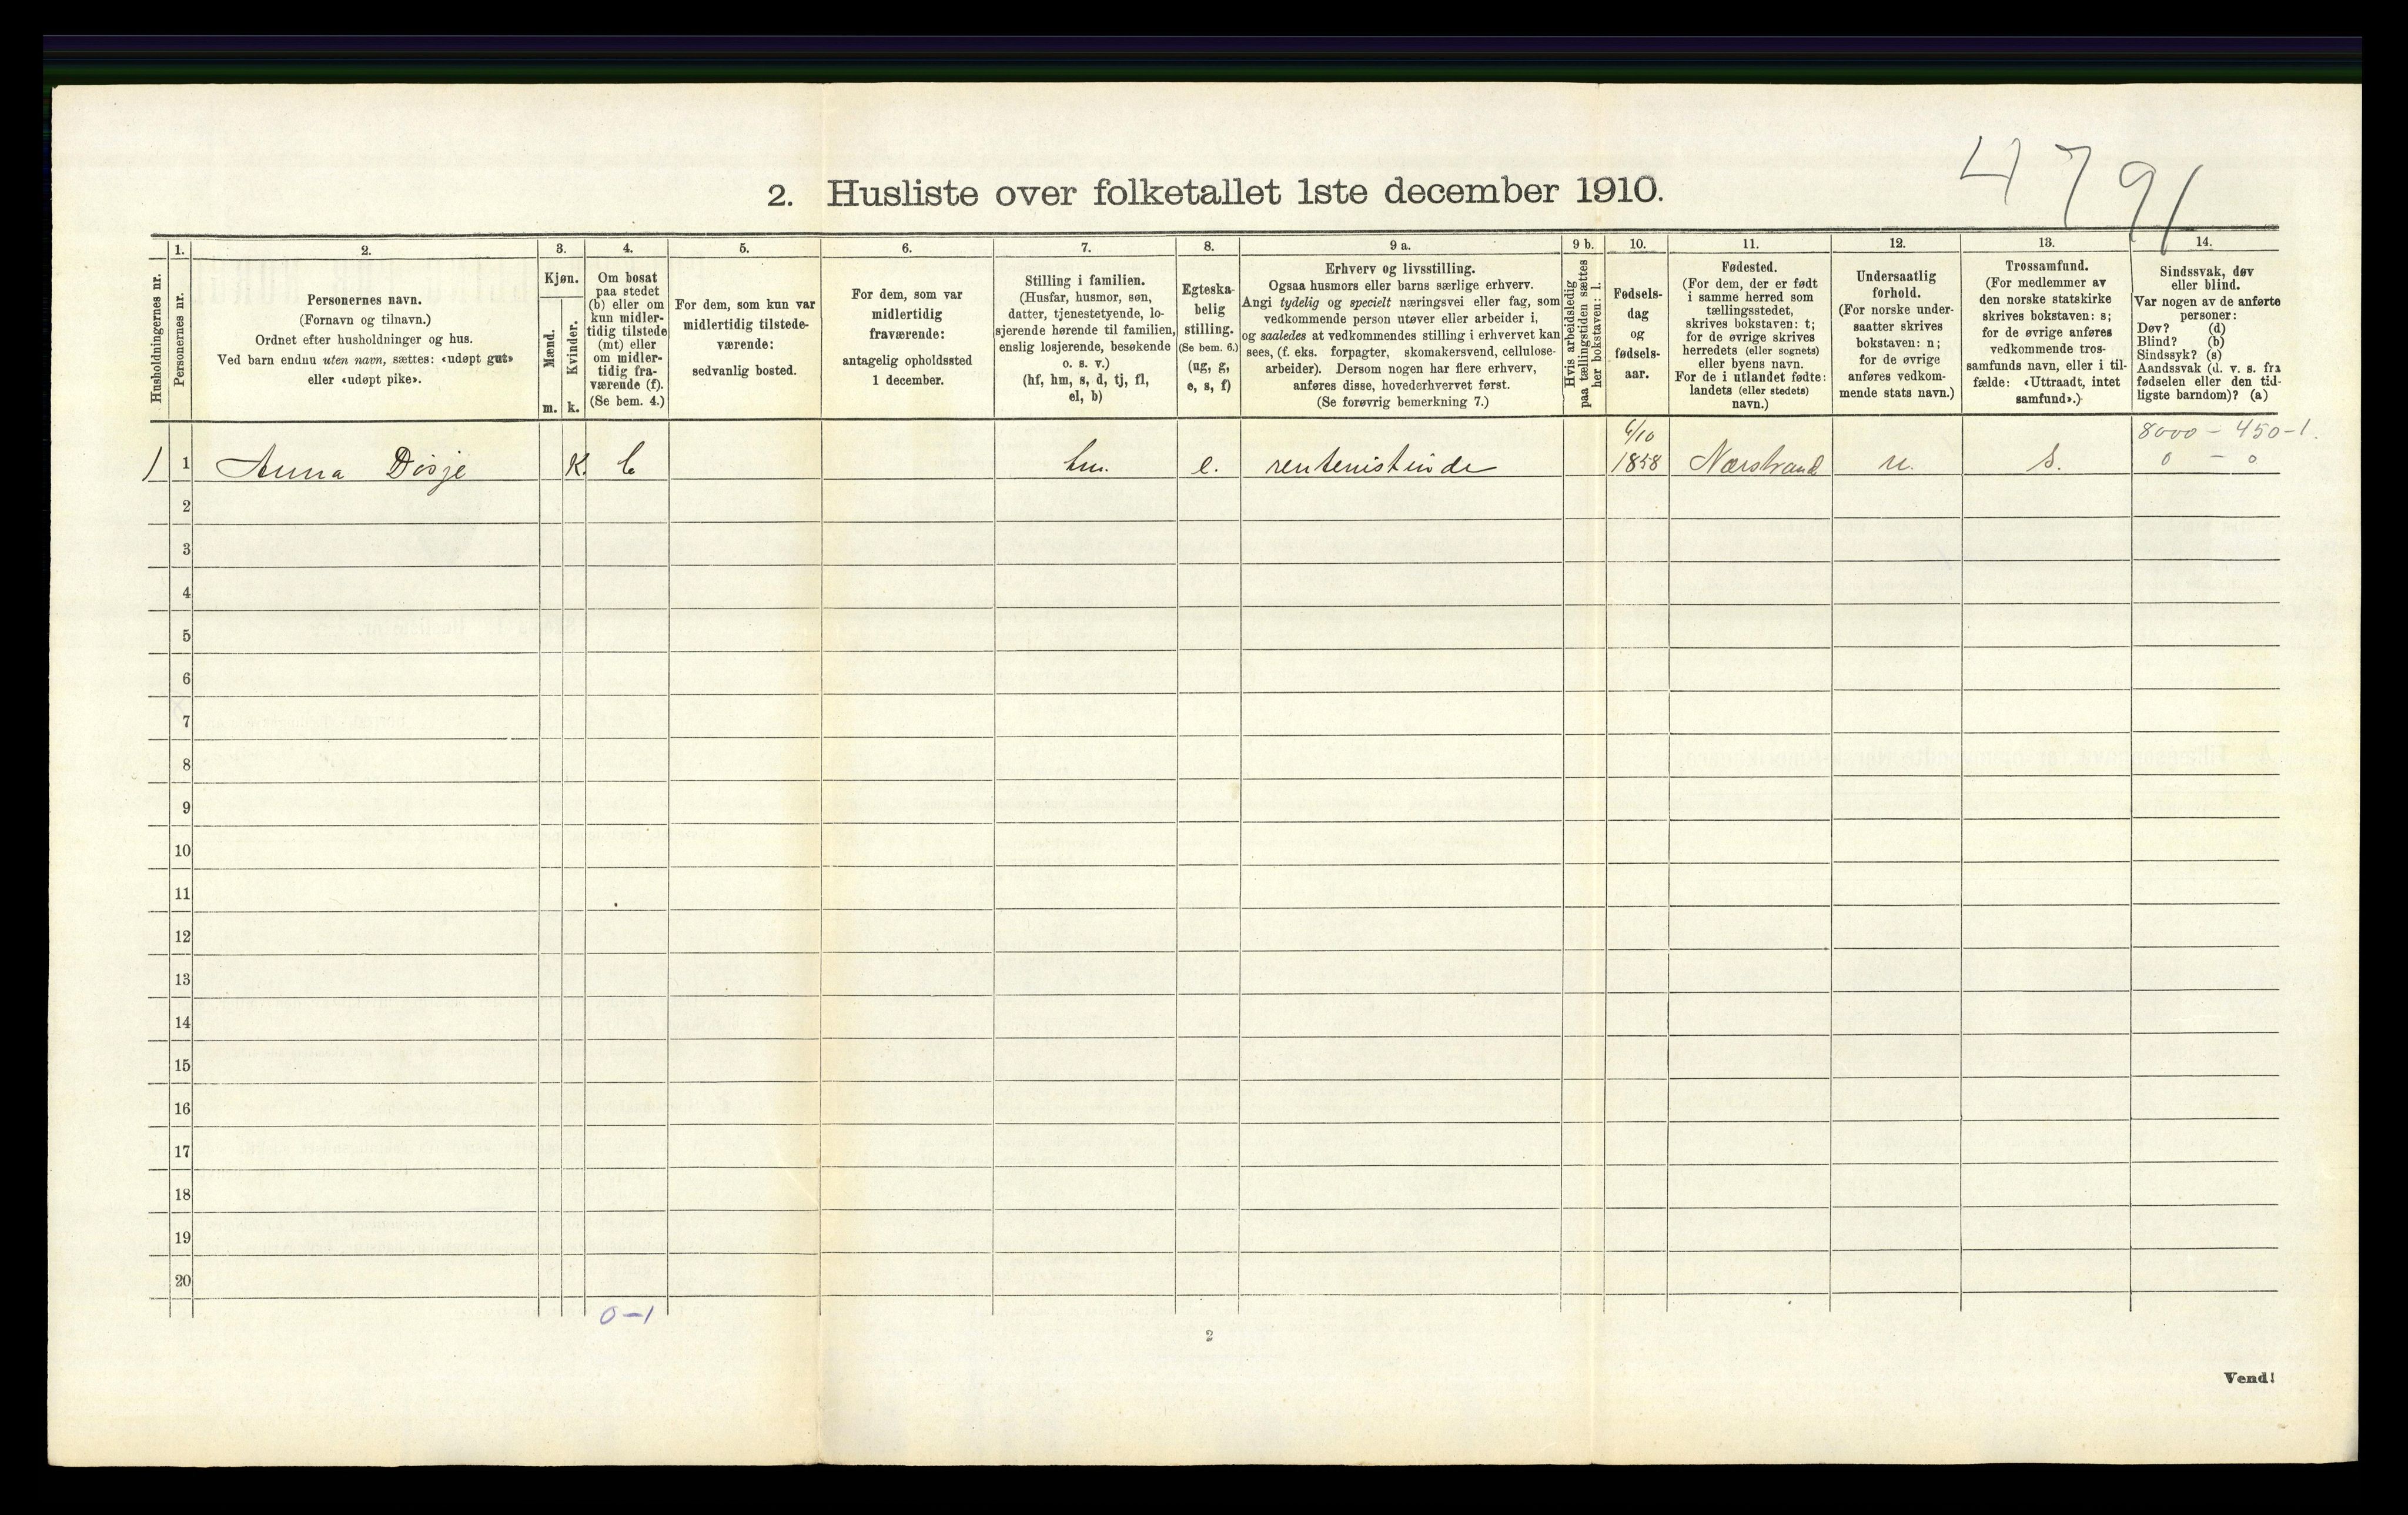 4791
2. Husliste over folketallet 1ste december 1910.
Husholdningernes nr.
1.
Personernes nr.
2.
Personernes navn.
(Fornavn og tilnavn.)
Ordnet efter husholdninger og hus.
Ved barn endnu uten navn, sættes: «udøpt gut»
eller «udøpt pike».
3.
Kjøn.
Mænd.
Kvinder.
m.
k.
4.
Om bosat
paa stedet
(b) eller om
kun midler-
tidig tilstede
(mt) eller
om midler-
tidig fra-
værende (f).
(Se bem. 4.)
5.
For dem, som kun var
midlertidig tilstede-
værende:
sedvanlig bosted.
6.
For dem, som var
midlertidig
fraværende:
antagelig opholdssted
1 december.
7.
Stilling i familien.
(Husfar, husmor, søn,
datter, tjenestetyende, lo-
sjerende hørende til familien,
enslig losjerende, besøkende
o. s. v.)
(hf, hm, s, d, tj, fl,
el, b)
8.
Egteska-
belig
stilling.
(Se bem. 6.)
(ug, g,
e, s, f)
9 a.
Erhverv og livsstilling.
Ogsaa husmors eller barns særlige erhverv.
Angi tydelig og specielt næringsvei eller fag, som
vedkommende person utøver eller arbeider i,
og saaledes at vedkommendes stilling i erhvervet kan
sees, (f. eks. forpagter, skomakersvend, cellulose-
arbeider). Dersom nogen har flere erhverv,
anføres disse, hovederhvervet først.
(Se forøvrig bemerkning 7.)
9 b.
Hvis arbeidsledig
paa tællingstiden sættes
her bokstaven: l.
10.
Fødsels-
dag
og
fødsels-
aar.
11.
Fødested.
(For dem, der er født
i samme herred som
tællingsstedet,
skrives bokstaven: t;
for de øvrige skrives
herredets (eller sognets)
eller byens navn.
For de i utlandet fødte:
landets (eller stedets)
navn.)
12.
Undersaatlig
forhold.
(For norske under-
saatter skrives
bokstaven: n;
for de øvrige
anføres vedkom-
mende stats navn.)
13.
Trossamfund.
(For medlemmer av
den norske statskirke
skrives bokstaven: s;
for de øvrige anføres
vedkommende tros-
samfunds navn, eller i til-
fælde: «Uttraadt, intet
samfund».)
14.
Sindssvak, døv
eller blind.
Var nogen av de anførte
personer:
Døv? (d)
Blind? (b)
Sindssyk? (s)
Aandssvak (d. v. s. fra
fødselen eller den tid-
ligste barndom)? (a)
6/10 8000 - 450-1.
1 1 Anna Døsje K. b hm. e. rentenistinde 1858 Nærstrand n. s. 0 - 0
2
3
4
5
6
7
8
9
10
11
12
13
14
15
16
17
18
19
20
0-1
2
Vend!